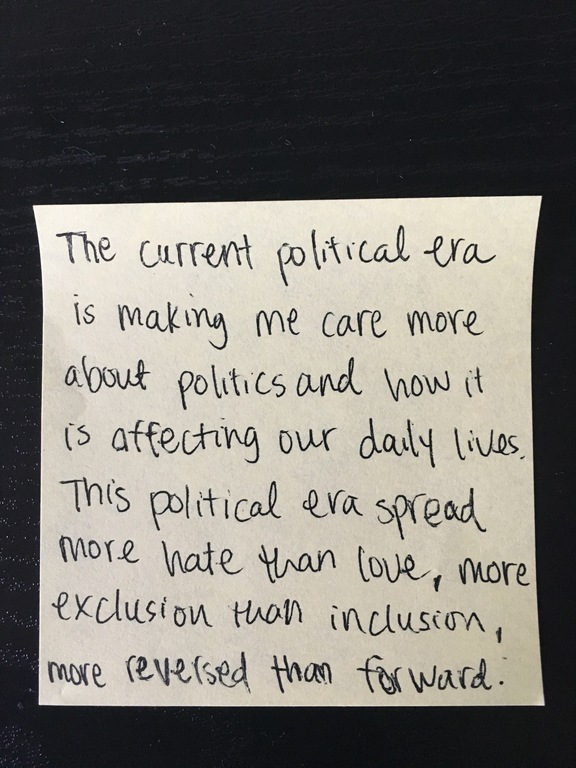 The current political era
is making me care more
about politics and how it
is affecting our daily lives.
This political era spread
more hate than love, more
exclusion than inclusion,
more reversed than forward.